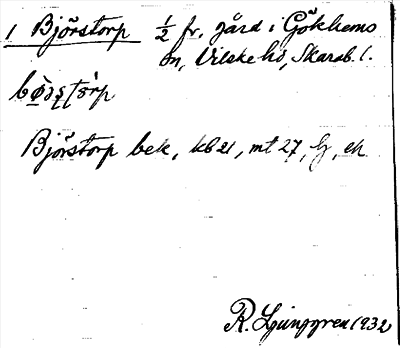 1 Björstorp ½ fr. gård i Gökhems
sn, Vilske hd, Skarab. l.
Björstorp bek, kb 21, mt 27, lj, ek
R. Ljunggren 1932